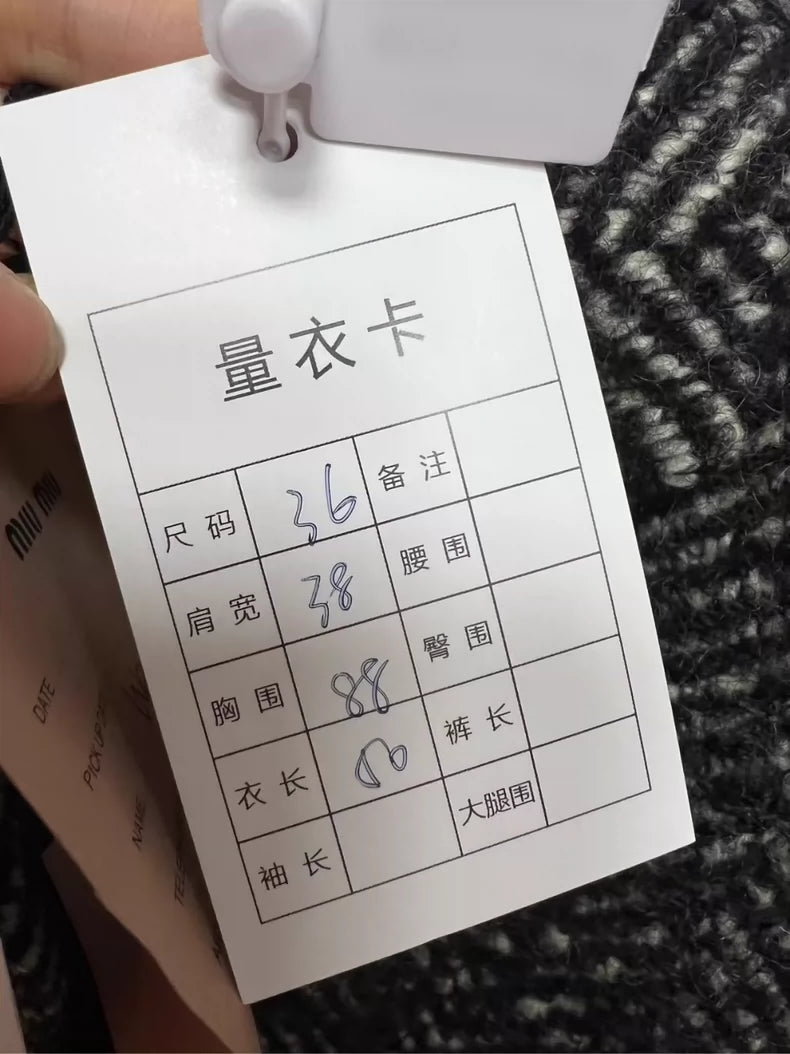 量衣卡
尺码 36 备注
肩宽 38 腰围
胸围 88 臀围
衣长 裤长
袖长 大腿围
MIU MIU
DATE
NAME